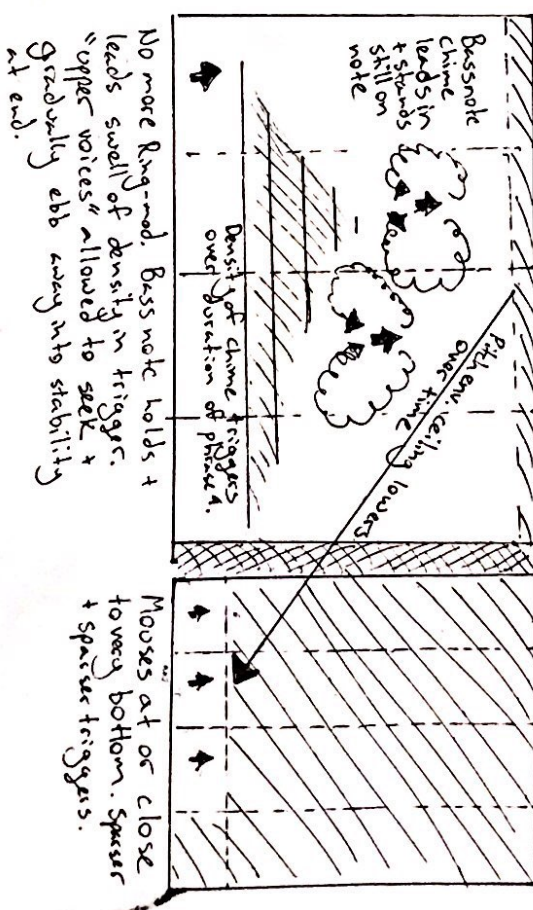 Bassnote
chime
leads in
+ stands
still on
note
Pitch env. ceiling lowers
over time
Density of chime triggers
over duration of phrase 4.
No more Ring-mod. Bass note holds +
leads swell of density in trigger.
"upper voices" allowed to seek +
gradually ebb away into stability
at end.
Mouses at or close
to very bottom. Sparser
+ sparser triggers.